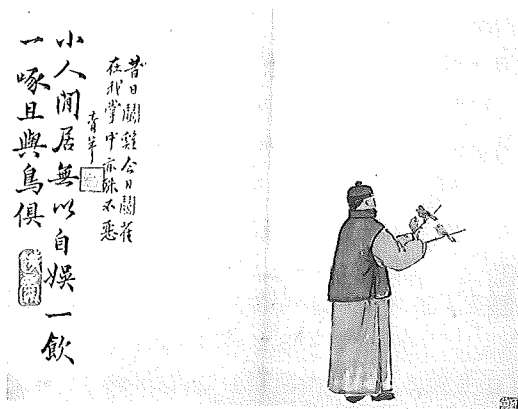 昔日鬪雞今日鬪雀
在我掌中亦殊不惡
小人閒居無以自娛一飲
一啄且與鳥俱